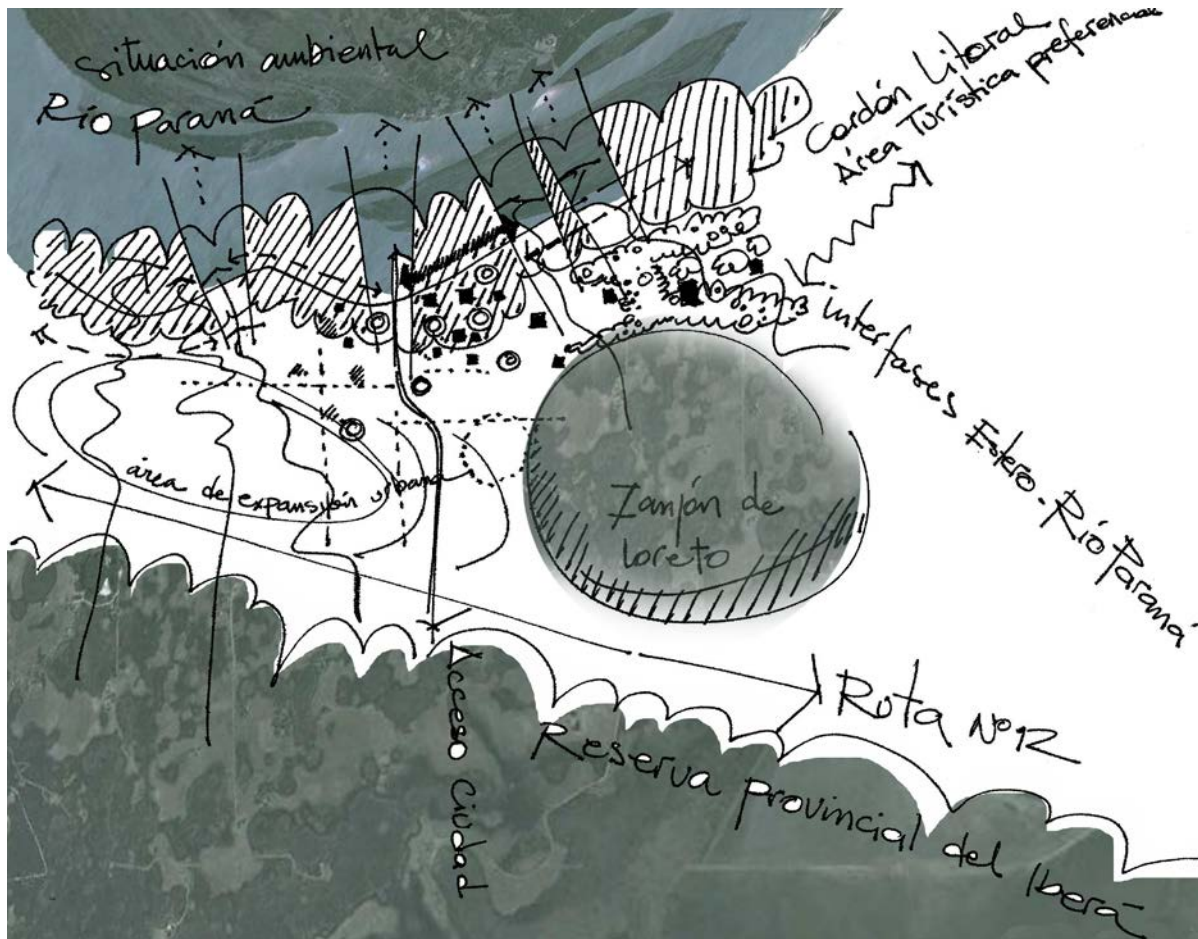 situación ambiental
Río Paraná
Cordón Litoral
Área Turística preferencial
interfases Estero-Río Paraná
área de expansión urbana
Zanjón de
loreto
Ruta Nº12
Acceso Ciudad
Reserva provincial del Iberá